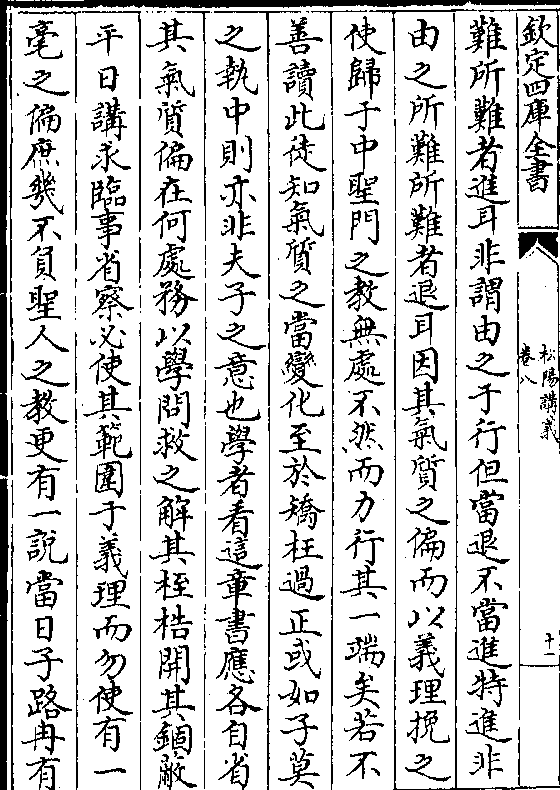 欽定四庫全書
松陽講義
卷八
十一
難所難者進耳非謂由之于行但當退不當進特進非
由之所難所難者退耳因其氣質之偏而以義理挽之
使歸于中聖門之教無處不然而力行其一端矣若不
善讀此徒知氣質之當變化至於矯枉過正或如子莫
之執中則亦非夫子之意也學者看這章書應各自省
其氣質偏在何處務以學問救之解其桎梏開其錮蔽
平日講求臨事省察必使其範圍于義理而勿使有一
毫之偏庶幾不負聖人之教更有一說當日子路冉有